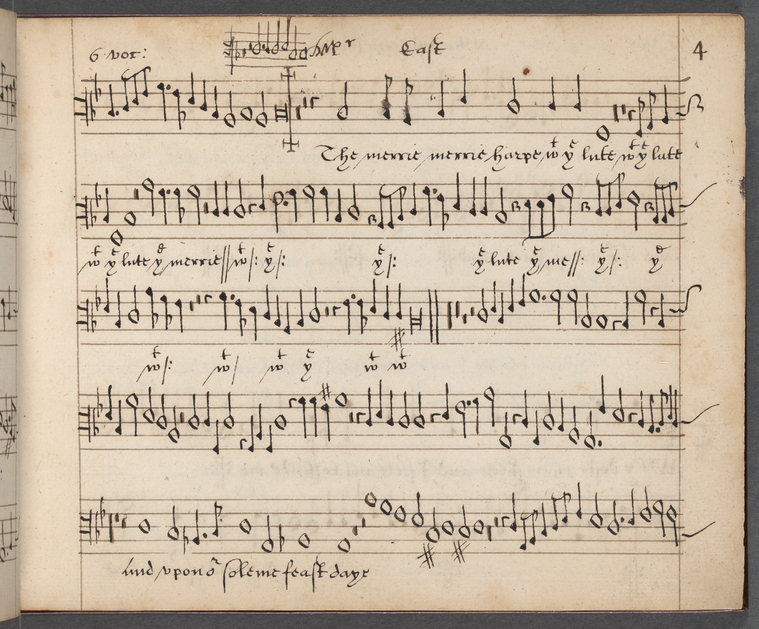 6 voc: East 4
The merrie merrie harpe wt ye lute wt ye lute
wt ye lute ye merrie //: wt /: ye /: ye /: ye lute ye me //: ye /: ye
wt /: wt / wt ye wt wt
And vpon or solemne feast daye